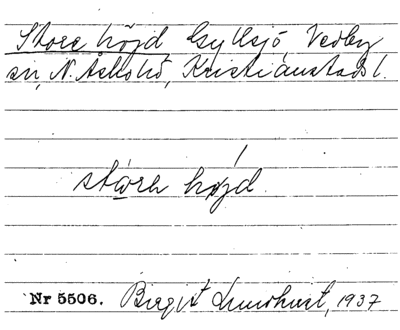 Store höjd Gyllsjö, Vedby
sn, N. Åsbo hd, Kristianstads l.
störe höjd.
Nr 5506. Birgit Lundhust, 1937